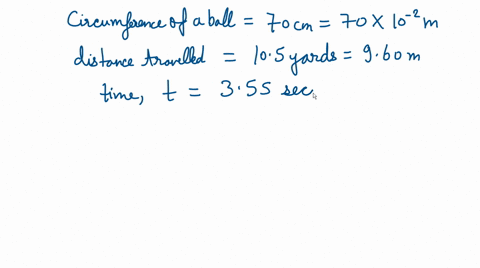 Circumference of a ball = 70 cm = 70 × 10⁻² m
distance travelled = 10.5 yards = 9.60 m
time, t = 3.55 sec